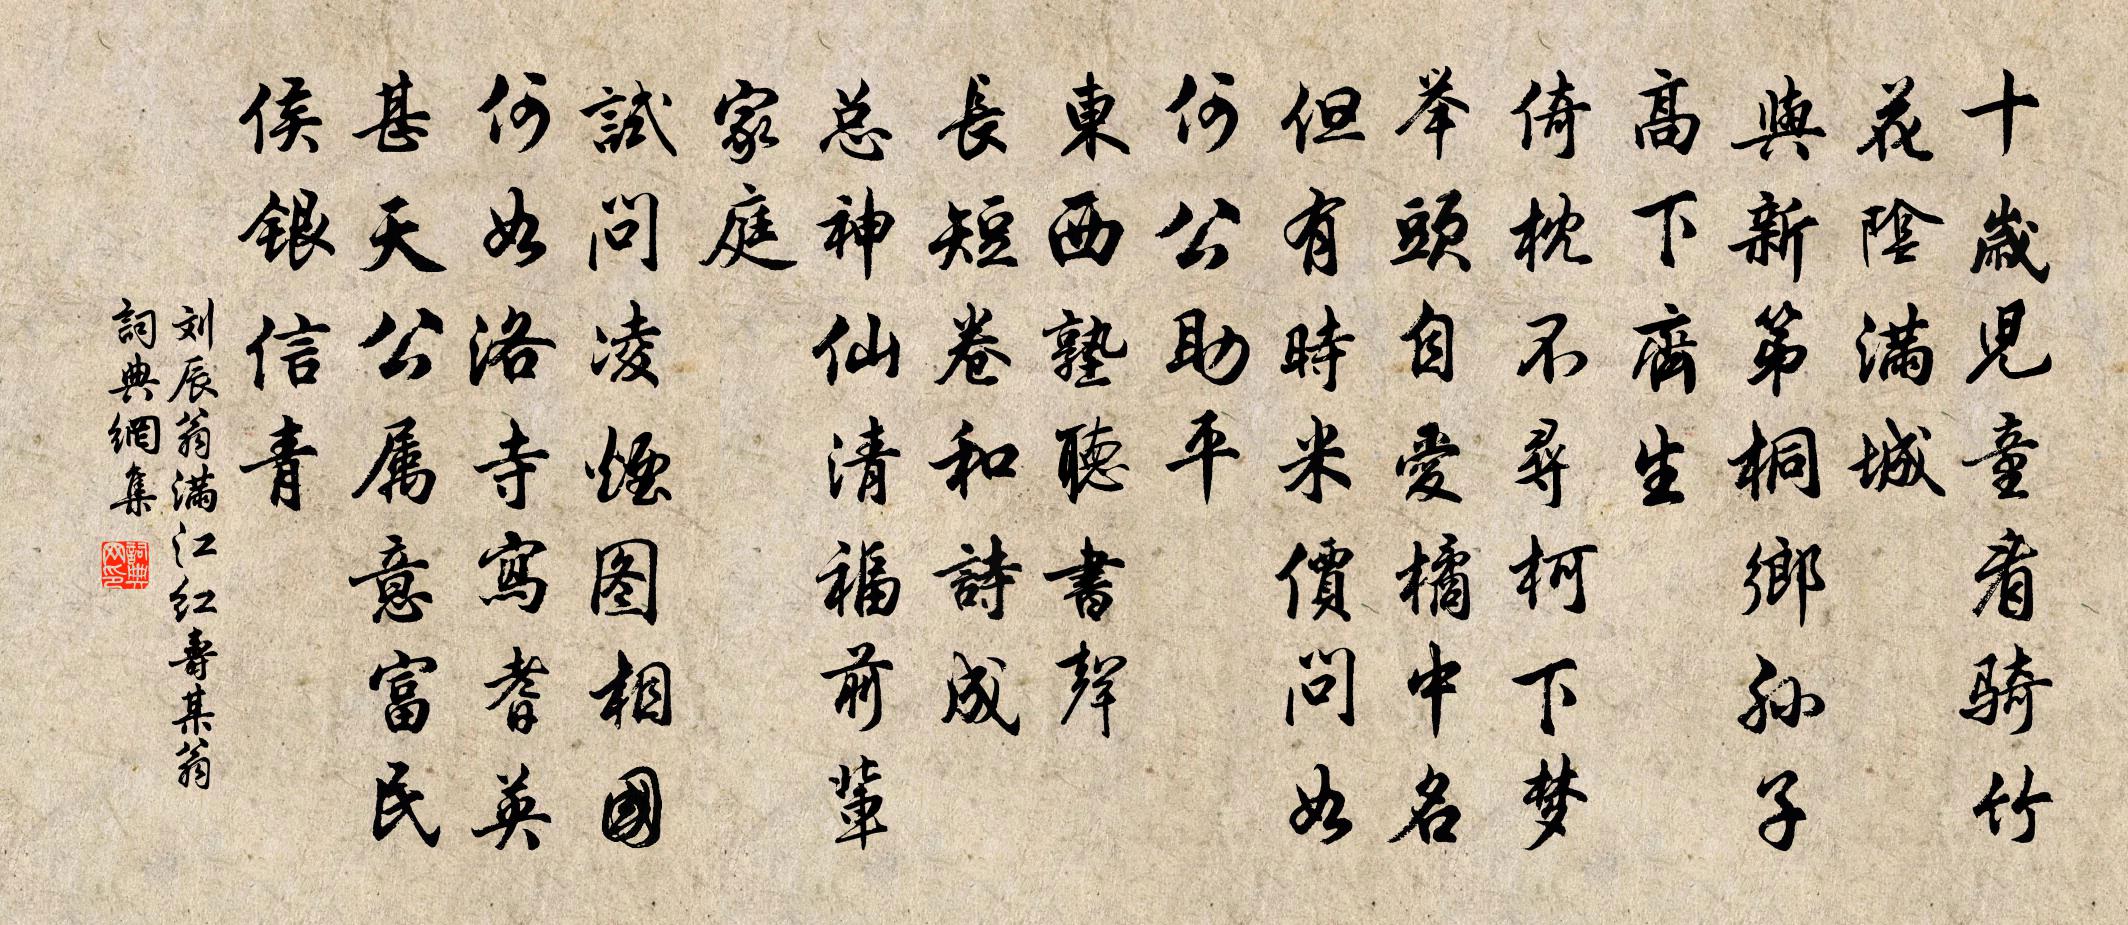 十歲児童看骑竹
花陰满城
與新第桐鄉孙子
高下齊生
倚枕不尋柯下梦
举頭自愛橘中名
但有時米價問如
何公助平
東西塾聽書聲
長短卷和詩成
总神仙清福前輩
家庭
試問凌煙图相國
何如洛寺寫耆英
甚天公属意富民
侯銀信青
刘辰翁满江红壽某翁
詞典網集
詞典网印